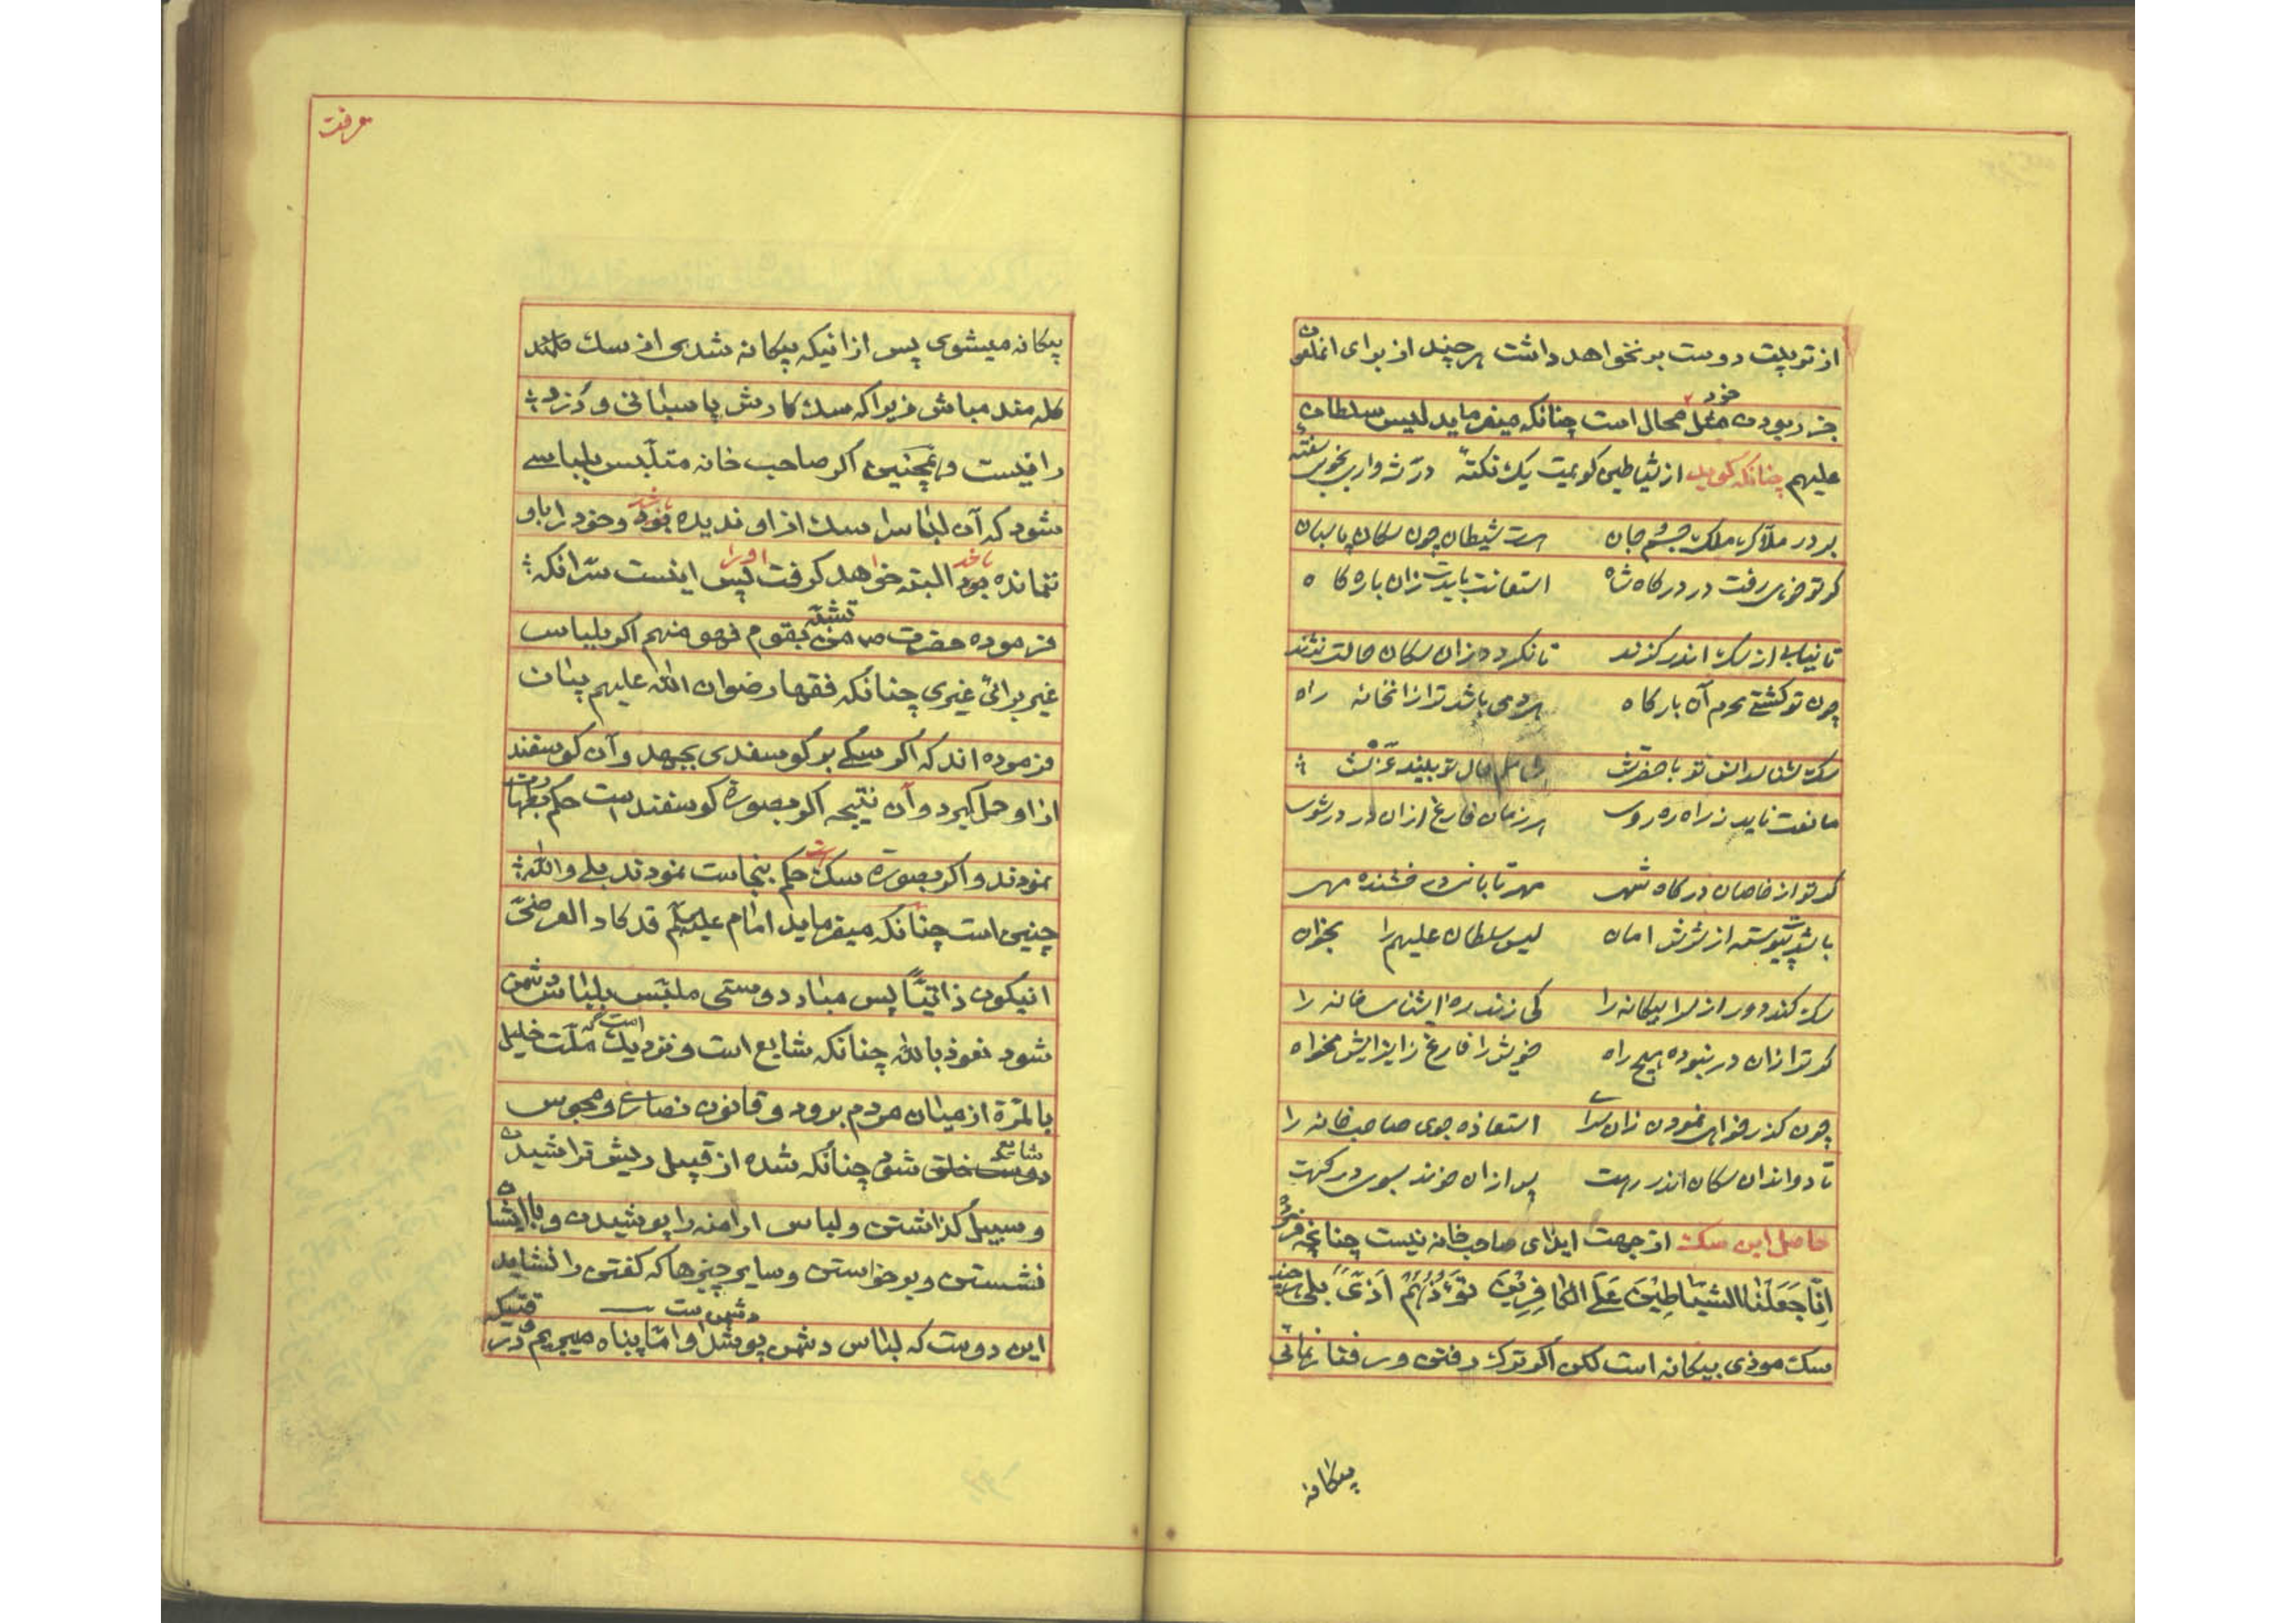 از تو پلت دوست بر نخواهد داشت هر چند از برای
خود
جز ربودن محال است چنانکه میفرماید لیس سلطان
علیهم چنانکه گوید از شیاطین گویمت یک نکتهٔ در
بر در ملک جان هست شیطان چون سکان پاسبان
گر تو خواهی رفت در درکاه شاه استعانت بایدت زان بارکاه
تا نیابی از سک اندر کزند تا نکردد زان سکان حالت نژند
چون تو کشتی محرم آن بارکاه می باشد ترا زانخانه راه
مانعت ناید ز راه ره روی هر زمان فارغ ازان در در شوی
گر تو از خاصان درکاه شهی مهر تابانی و رخشنده مهی
باشد پیوسته از شرش امان لیس سلطان علیهم را بخوان
سک کند دور از سرا بیکانه را کی زند ره اشنای خانه را
گر ترا زان در نبوده هیچ راه خویش را فارغ ز ایذایش مخواه
چون کذر خواهی نمودن زان سرا استعاذه جوی صاحب خانه را
تا دواندان سکان اندر رهت پس ازان خواند بسوی درکهت
حاصل این سک از جهت ایذای صاحب خانه نیست چنانچه فرمود
اِنّا جَعَلْنَا الشیَاطِیْنَ عَلَی الکافِرِیْنَ تَؤُذُّهُمْ اَذیً بلی هر چند
سک موذی بیکانه است لکن اگر ترک رفتی و رفتار نهائی
پیکانه
معرفت
پیکانه میشوی پس از انیکه پیکانه شدی از سک
کله مند مباش زیرا که سک کارش پاسبانی و دزدی
را نیست و همچنین اکر صاحب خانه متلبس بلباسی
باشد
شود که آن لباس را سک از او ندیده بود و خود را باو
باشد او را
ننمانده بود البته خواهد کرفت پس اینست سّر انکه
تشبّه
فرموده حضرت ص من بقوم فهو منهم اکر بلباس
غیر برائی غیری چنانکه فقهاء رضوان اللّه علیهم بیان
فرموده اند که اکر سکی بر کوسفندی بجهد و آن کوسفند
از او حمل کیرد و آن نتیجه اکر بصورة کوسفند است حکم بطهارت
نمودند و اکر بصورة سک است حکم بنجاست نمودند بلی واللّه
چنین است چنانکه میفرماید امام علیه السلم قد کاد العرضیّ
انیکون ذاتیّاً پس مباد دوستی ملبّس بلباس دشمن
شود نعوذ باللّه چنانکه شایع است و نزدیک است که ملّت خلیل
بالمّرة از میان مردم برود و قانون نصاری و مجوس
شایع
شود چنانکه شده از قبیل ریش تراشیدن
و سبیل کذاشتن و لباس ارامنه را پوشیدن و با ایشان
نشستن و برخواستن و سایر چیزها که کفتن را نشاید
دشمن است
این دوست که لباس دشمن پوشد او امّا پناه میبریم در وقتیکه